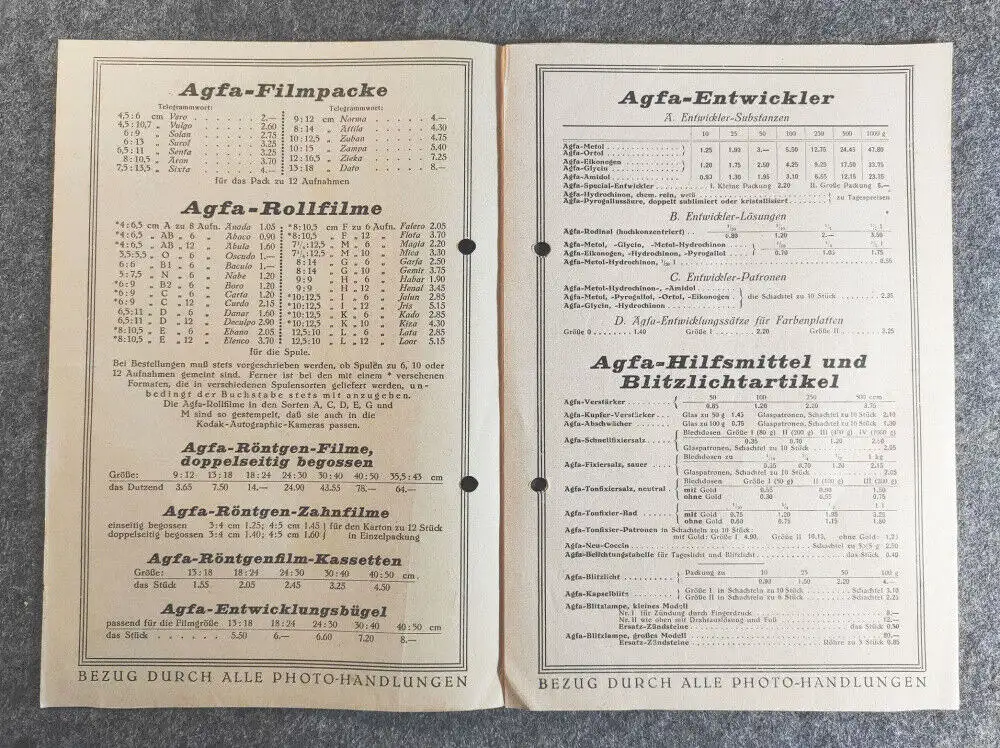 Agfa-Filmpacke
Telegrammwort: Telegrammwort:
4,5 : 6 cm Vero . . . . . 2.— 9 : 12 cm Norma . . . . 4.—
4,5 : 10,7 „ Vulgo . . . . . 2.60 8 : 14 „ Attila . . . . 4.30
6 : 9 „ Solan . . . . . 2.75 10 : 12,5 „ Zaban . . . . 4.75
6 : 13 „ Surol . . . . . 3.25 10 : 15 „ Zampa . . . . 5.40
6,5 : 11 „ Senta . . . . . 3.25 12 : 16,5 „ Zieka . . . . 7.25
8 : 10,5 „ Aron . . . . . 3.70 13 : 18 „ Dato . . . . 8.—
7,5 : 13,5 „ Sixta . . . . . 4.—
für das Pack zu 12 Aufnahmen
Agfa-Rollfilme
*4 : 6,5 cm A zu 8 Aufn. Anado 1.05 *8 : 10,5 cm F zu 6 Aufn. Falero 2.05
*4 : 6,5 „ AB „ 6 „ Abaco 0.90 *8 : 10,5 „ F „ 12 „ Flota 3.70
*4 : 6,5 „ AB „ 12 „ Abula 1.60 7¼ : 12,5 „ M „ 6 „ Magia 2.20
3,5 : 5,5 „ O „ 6 „ Oscudo 1.— 7¼ : 12,5 „ M „ 10 „ Mica 3.30
6 : 6 „ B1 „ 6 „ Baculo 1.— 8 : 14 „ G „ 6 „ Garfa 2.50
5 : 7,5 „ N „ 6 „ Nabe 1.20 8 : 14 „ G „ 10 „ Gemir 3.75
*6 : 9 „ B2 „ 6 „ Boro 1.20 9 : 9 „ H „ 6 „ Habar 1.90
*6 : 9 „ C „ 6 „ Carta 1.20 9 : 9 „ H „ 12 „ Henal 3.45
*6 : 9 „ C „ 12 „ Curdo 2.15 *10 : 12,5 „ I „ 6 „ Jalun 2.85
6,5 : 11 „ D „ 6 „ Danar 1.60 *10 : 12,5 „ I „ 12 „ Iris 5.15
6,5 : 11 „ D „ 12 „ Deculpo 2.90 *10 : 12,5 „ K „ 6 „ Kado 2.85
*8 : 10,5 „ E „ 6 „ Ebano 2.05 *10 : 12,5 „ K „ 10 „ Kita 4.30
*8 : 10,5 „ E „ 12 „ Elenco 3.70 12,5 : 10 „ L „ 6 „ Lata 2.85
12,5 : 10 „ L „ 12 „ Loor 5.15
für die Spule.
Bei Bestellungen muß stets vorgeschrieben werden, ob Spulen zu 6, 10 oder
12 Aufnahmen gemeint sind. Ferner ist bei den mit einem * versehenen
Formaten, die in verschiedenen Spulensorten geliefert werden, un-
bedingt der Buchstabe stets mit anzugeben.
Die Agfa-Rollfilme in den Sorten A, C, D, E, G und
M sind so gestempelt, daß sie auch in die
Kodak-Autographic-Kameras passen.
Agfa-Röntgen-Filme,
doppelseitig begossen
Größe: 9 : 12 13 : 18 18 : 24 24 : 30 30 : 40 40 : 50 35,5 : 43 cm
das Dutzend 3.65 7.50 14.— 24.90 43.55 78.— 64.—
Agfa-Röntgen-Zahnfilme
einseitig begossen 3 : 4 cm 1.25; 4 : 5 cm 1.45 für den Karton zu 12 Stück
doppelseitig begossen 3 : 4 cm 1.40; 4 : 5 cm 1.60 in Einzelpackung
Agfa-Röntgenfilm-Kassetten
Größe: 13 : 18 18 : 24 24 : 30 30 : 40 40 : 50 cm
das Stück 1.55 2.05 2.45 3.25 4.50
Agfa-Entwicklungsbügel
passend für die Filmgröße 13 : 18 18 : 24 24 : 30 30 : 40 40 : 50 cm
das Stück . . . . . . 5.50 6.— 6.60 7.20 8.—
BEZUG DURCH ALLE PHOTO-HANDLUNGEN
Agfa-Entwickler
A. Entwickler-Substanzen
10 25 50 100 250 500 1000 g
Agfa-Metol
Agfa-Ortol 1.25 1.90 3.— 5.50 12.75 24.45 47.80
Agfa-Eikonogen
Agfa-Glycin 1.20 1.75 2.50 4.25 9.25 17.50 33.75
Agfa-Amidol 0.90 1.30 1.95 3.10 6.55 12.15 23.35
Agfa-Special-Entwickler I. Kleine Packung 2.20 II. Große Packung 5.—
Agfa-Hydrochinon, chem. rein, weiß
Agfa-Pyrogallussäure, doppelt sublimiert oder kristallisiert zu Tagespreisen
B. Entwickler-Lösungen
Agfa-Rodinal (hochkonzentriert) 0.80 1.20 2.— 3.50
Agfa-Metol, -Glycin, -Metol-Hydrochinon
Agfa-Eikonogen, -Hydrochinon, -Pyrogallol 0.70 1.05 1.75
Agfa-Metol-Hydrochinon, 0.55
C. Entwickler-Patronen
Agfa-Metol-Hydrochinon-, -Amidol
Agfa-Metol, -Pyrogallol, -Ortol, -Eikonogen die Schachtel zu 10 Stück 2.35
Agfa-Glycin, -Hydrochinon
D. Agfa-Entwicklungssätze für Farbenplatten
Größe 0 1.40 Größe I 2.20 Größe II 3.25
Agfa-Hilfsmittel und
Blitzlichtartikel
50 100 250 500 ccm
Agfa-Verstärker 0.85 1.20 2.20 3.75
Agfa-Kupfer-Verstärker Glas zu 50 g 1.45 Glaspatronen, Schachtel zu 10 Stück 2.10
Agfa-Abschwächer Glas zu 100 g 0.75 Glaspatronen, Schachtel zu 10 Stück 1.30
Agfa-Schnellfixiersalz Blechdosen Größe I (80 g) II (200 g) III (400 g) IV (1000 g)
0.35 0.70 1.20
Glaspatronen, Schachtel zu 10 Stück 2.05
Agfa-Fixiersalz, sauer Blechdosen zu 1 kg
0.35 0.70 1.20 2.15
Glaspatronen, Schachtel zu 10 Stück 2.05
Agfa-Tonfixiersalz, neutral Blechdosen Größe I (50 g) II (100 g) III (200 g)
mit Gold 0.55 0.90 1.50
ohne Gold 0.30 0.55 0.75
Agfa-Tonfixier-Bad
mit Gold 0.75 1.20 1.95 3.25
ohne Gold 0.60 0.75 1.15 1.80
Agfa-Tonfixier-Patronen in Schachteln zu 10 Stück:
mit Gold: Größe I 4.90, Größe II 10.15, ohne Gold:
Agfa-Neu-Coccin Schachtel zu 5×5 g 2.50
Agfa-Belichtungstabelle für Tageslicht und Blitzlicht das Stück 0.40
Agfa-Blitzlicht Packung zu 10 25 50 100 g
0.90 1.50 2.20 4.—
Agfa-Kapselblitz Größe I in Schachteln zu 10 Stück Schachtel 3.10
Größe II in Schachteln zu 6 Stück Schachtel 2.25
Agfa-Blitzlampe, kleines Modell
Nr. I für Zündung durch Fingerdruck 8.—
Nr. II wie oben mit Drahtauslösung und Fuß 12.—
Ersatz-Zündsteine das Stück 0.30
Agfa-Blitzlampe, großes Modell 80.—
Ersatz-Zündsteine Röhre zu 3 Stück 0.85
BEZUG DURCH ALLE PHOTO-HANDLUNGEN